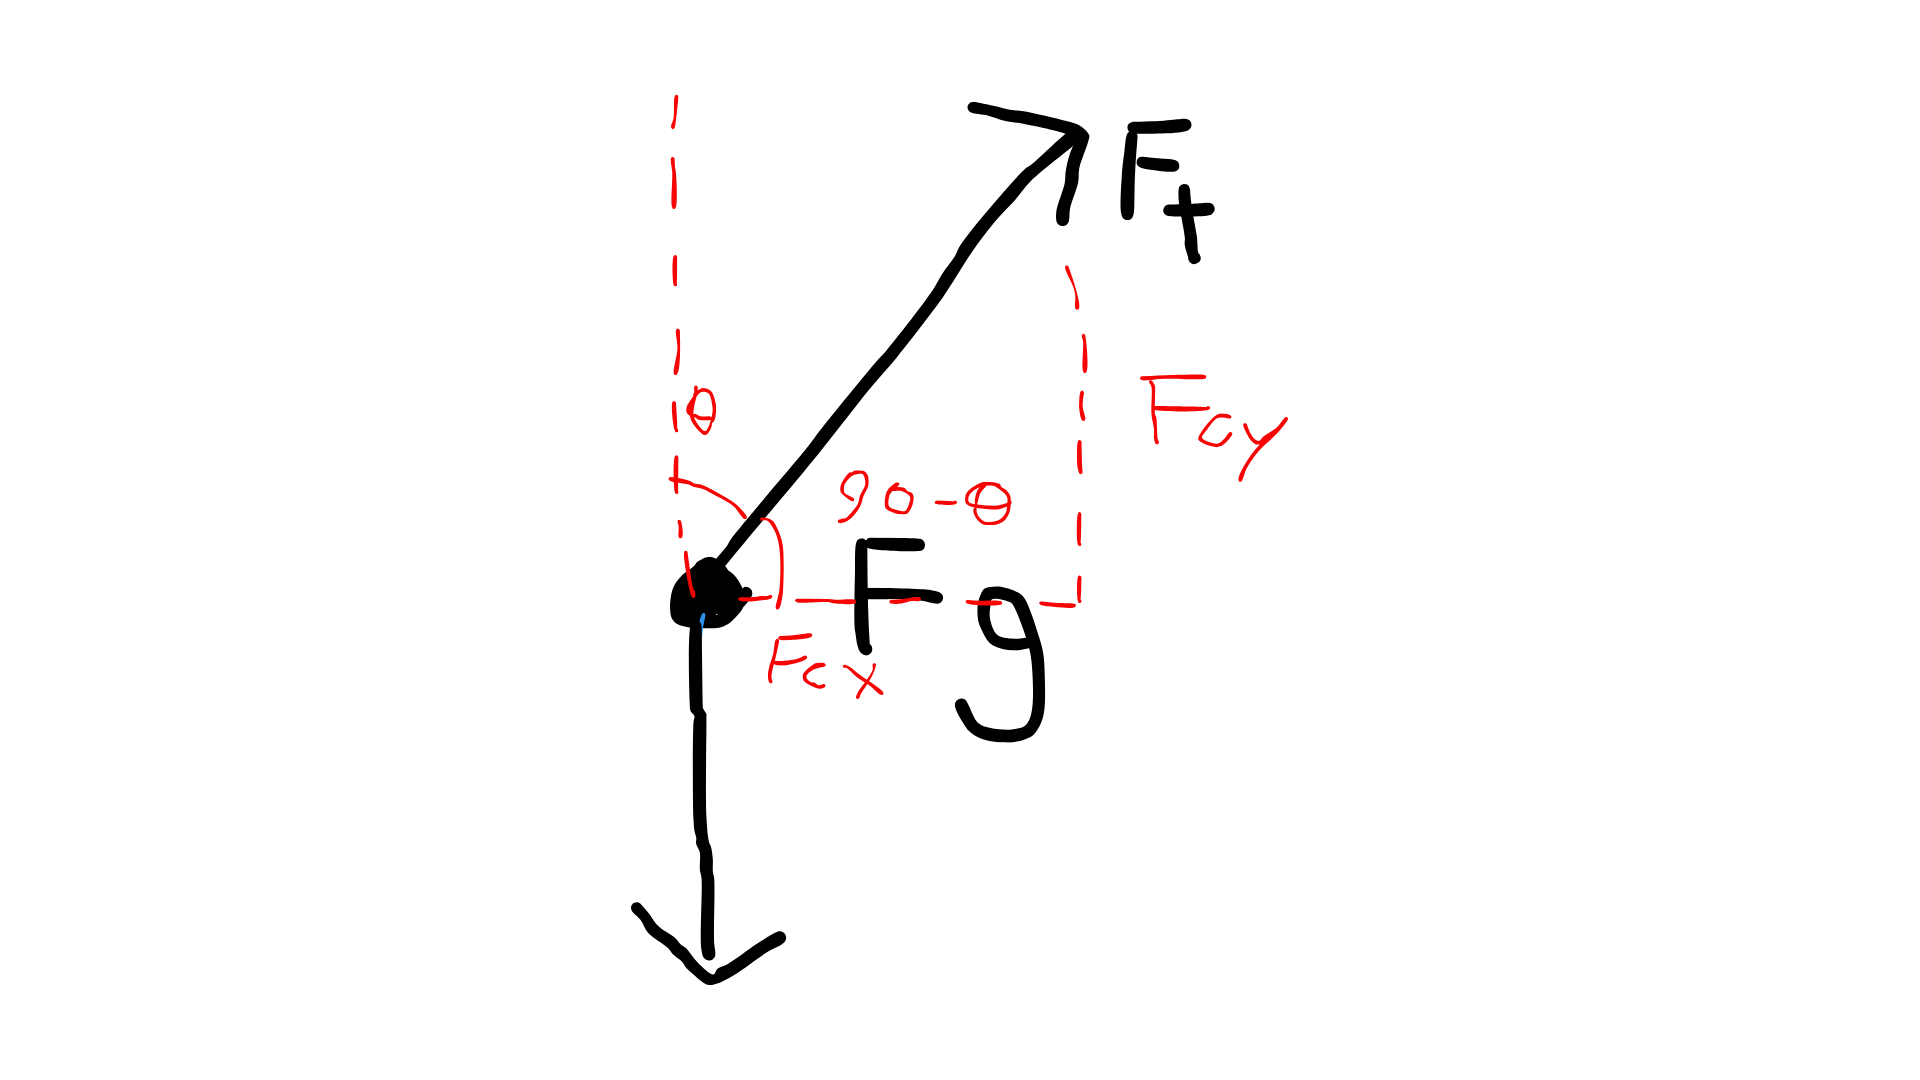 Ft
θ
Fcy
90-θ
Fg
Fcx